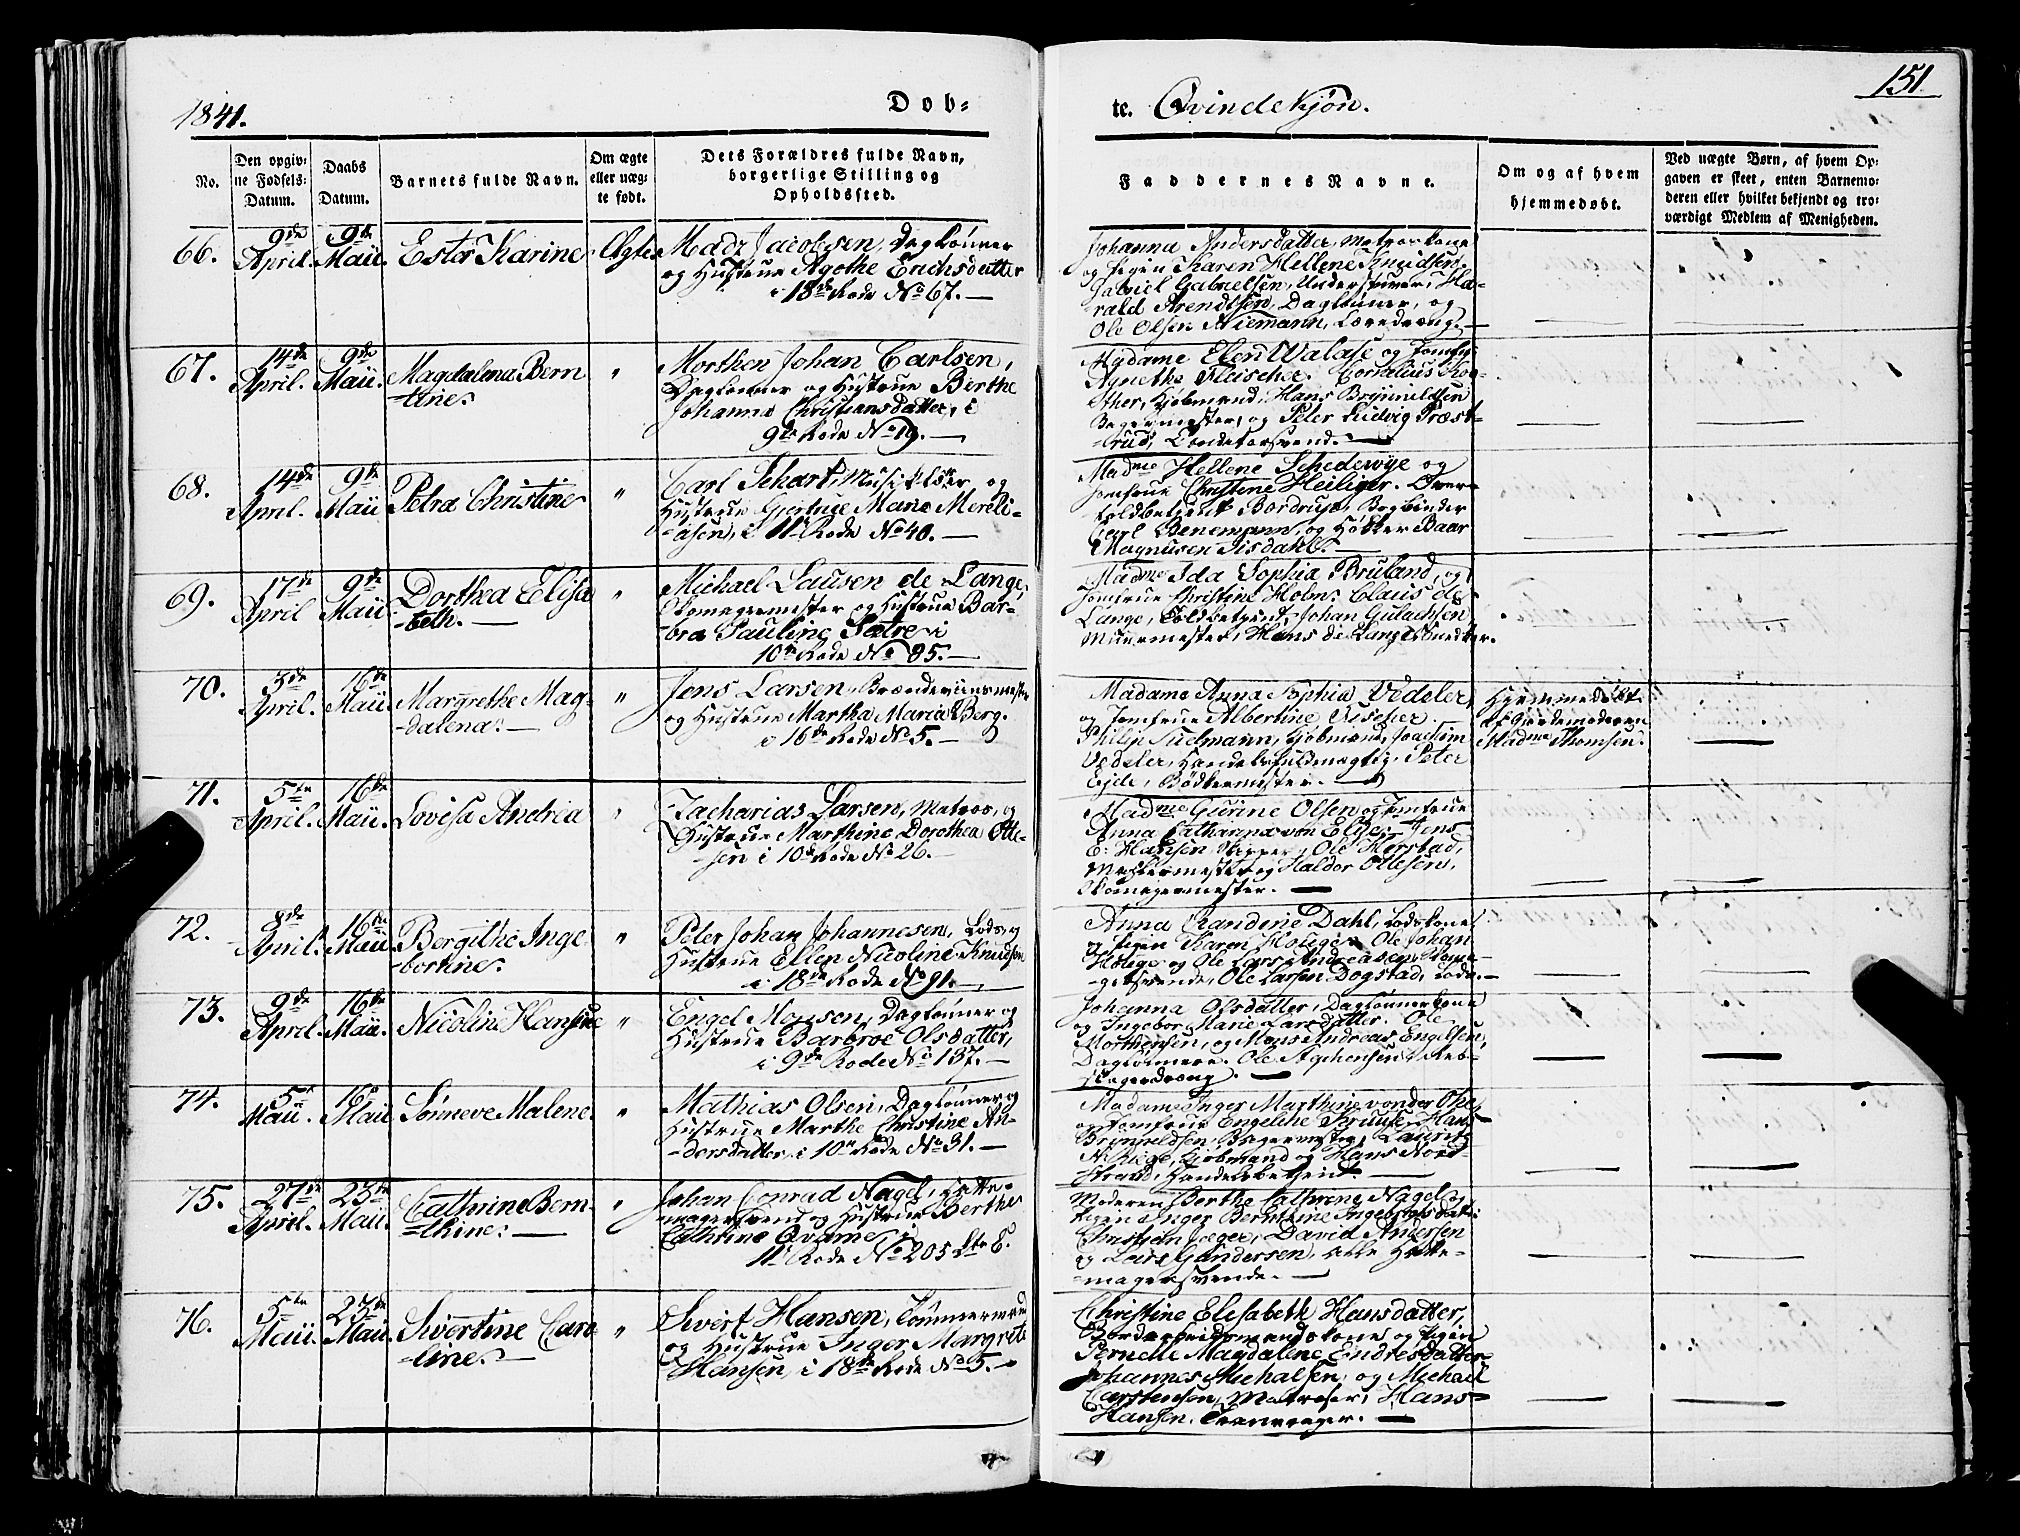 1841.
Dob-
te. Qvindekjøn.
151.
No.
Den opgiv-
ne Fødsels-
Datum.
Daabs
Datum.
Barnets fulde Navn.
Om ægte
eller uæg-
te født.
Dets Forældres fulde Navn,
borgerlige Stilling og
Opholdssted.
Faddernes Navne.
Om og af hvem
hjemmedøbt.
Ved uægte Børn, af hvem Op-
gaven er skeet, enten Barnemo-
deren eller hvilket bekjendt og tro-
værdigt Medlem af Menigheden.
66.
9de
April.
9de
Maii.
Ester Karine
Ægte
Mads Jacobsen, Daglønner
og Hustrue Agothe Erichsdatter
i 18de Rode No 67. —
Johanna Andersdatter, Matroskone
og Pigen Karen Hellene Knudsen.
Gabriel Gabrielsen, Understuer, Ha-
rald Arendtsen, Dagløner, og
Ole Olsen Niemann, Læredræng. —
67.
14de
April.
9de
Maii.
Magdalena Bern
-tine.
"
Morthen Johan Carlsen,
Daglønner og Hustrue Berthe
Johanne Christiansdatter, i
9de Rode No 19. —
Madame Elen Walase og Jomfr.
Agnethe Fleischer. Cornelius Ro-
ther, Kjøbmand, Hans Brynnildsen
Bagermester, og Peter Ludvig Præst-
-rud,
68.
14de
April.
9de
Maii
Petra Christine
"
Carl Schart, Musikker og
Hustrue Gjertrue Marie Mereli-
-asen, i 11te Rode No 40. —
Madme Hellene Schedewye og
Jomfrue Christine Heiliger. Over-
toldbetjent Bordrup, Bogbinder
Carl Benemann, og Høkker Baar
Magnusen Tisdahl. —
69.
17de
April
9de
Maii
Dorthea Elisa
-beth. —
"
Michael Lausen de Lange,
Skomagermester og Hustrue Bar-
-bra Pauline Sætre i
10de Rode No 85. —
Madme Ida Sophia Bruland, og
Jomfrue Christine Holm. Claus de
Lange, Toldbetjent, Johan Gulachsen,
Muurmester, Hans de Lange
70.
5de
April.
16de
Maii.
Margrethe Mag-
-dalena. —
"
Jens Larsen, Brænderiismester
og Hustrue Martha Maria Berg.
i 16de Rode No 5. —
Madame Anna Sophia Vedeler,
og Jomfrue Albertine Fischer.
Philip Suelmann, Kjøbmand, Joachim
Vedeler, Handelsfuldmægtig, Peter
Eide, Bødkermester. —
Hjemmedøbt
af Gjordemoderen
Madme Thomsen.
71.
5te
April.
16de
Maii.
Lovisa Andria
"
Zacharias Larsen, Matros, og
Hustrue Marthine Dorothea Olle-
-sen i 10de Rode No 26. —
Madme Gurine Olsen og Jomfrue
Anna Catharina von Elige. Jens
E. Hansen, Skipper, Ole Herstad,
og Haldor Ollesen,
Skomagermester. —
72.
8de
April.
16de
Maii
Bergithe Inge
-borhine.
"
Peter Johan Johannesen, Lods, og
Hustrue Ellen Nicoline Knudsen
i 18de Rode No 91. —
Anna Randine Dahl, Lodskone
og Pigen Karen Holeger. Ole Johan
Holeger og Ole Lars Andreasen, Skoma-
-gersvende, Ole Larsen Dogstad, Lods. —
73.
9de
April.
16de
Maii.
Nicoline Hansine
"
Engel Monsen, Dagløнner og
Hustrue Barbroe Olsdatter,
i 9de Rode No 137. —
Johanna Olsdatter, Dagløнnerkone
og Ingebor Marie Larsdatter. Ole
Morthensen, og Mons Andreas Engelsen,
Dagløнnere. Ole
74.
5te
Maii.
16de
Maii
Sønneve Malene.
"
Mathias Olsen, Dagløнner og
Hustrue Marthe Christine An-
-dersdatter, i 10de Rode No 31. —
Madame Inger Marthine von der Ohe,
og Jomfrue Engelche Struuse. Hans
Brynildsen, Bagermester, Laurits
A. Riege, Kjøbmand og Hans Nord-
strand, Handelsbetjent. —
75.
27de
April.
23de
Maii.
Cathrine Bern-
-thine. —
"
Johan Conrad Nagel, Hatte-
-magersvend og Hustrue Berthe
Cathrine Qvamme, i
11te Rode No 205 Ltr E.
Moderen Berthe Cathrine Nagel og
Pigen Inger Bernthine Ingeborgsdatr.
Christian Jæger, David Andersen
og Lars Gundersen, alle Hatte-
-magersvende. —
76.
5te
Maii.
23de
Maii.
Sivertine Caro
-line. —
"
Sivert Hansen, Tømmermand
og Hustrue Inger Margrete
Hansen, i 18de Rode No 5. —
Christine Elisabeth Hansdatter,
Bordarbeidsmandskone og Pigen
Pernelle Magdalene Endresdatter.
Johannes Michalsen, og Michael
Carstensen, Matroser, Hans
Hansen,